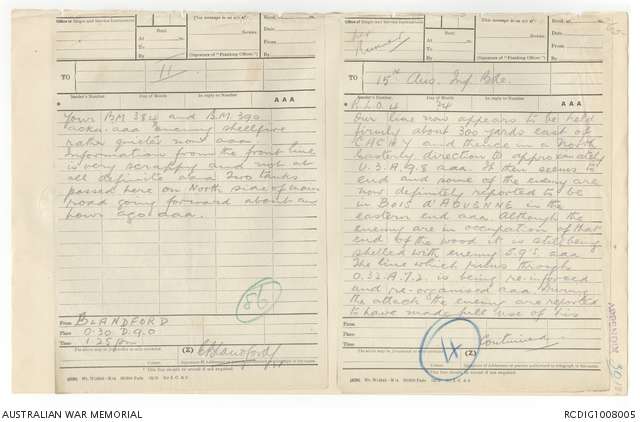 Office of Origin and Service Instructions
This message is on a/c of:
Recd. at
Date
From
By
Sent
At
To
By
(Signature of "Franking Officer.")
TO
11
Sender's Number
Day of Month
In reply to Number
AAA
Your B.M 384 and B.M. 390
aaa enemy shellfire
rather quieter now aaa
Information from the front line
is very scrappy and not at
all definite aaa Two tanks
passed here on North side of main
road going forward about an
hour ago aaa.
86
From BLANDFORD
Place O.30. D.9.0
Time 1.25 pm
(Z)
* This line should be erased if not required.
Office of Origin and Service Instructions
By
Runner
Sent
At
To
By
(Signature of "Franking Officer.")
This message is on a/c of:
Recd. at
Date
From
By
TO
15th Aus. Inf Bde.
Sender's Number
Day of Month
In reply to Number
AAA
24
Our line now appears to be held
firmly about 300 yards east of
CACHY and thence in a North
Easterly direction to approximately
U.3.A.9.8 aaa. It then seems to
end and some of the enemy are
now definitely reported to be
in Bois d'AQUENNE in the
eastern end aaa. Although the
enemy are in occupation of that
end of the wood it is still being
shelled with enemy 5.9's aaa
The line which runs through
O.32.A.7.2 is being re-inforced
and re-organised aaa During
the attack the enemy are reported
to have made full use of his
From
Place
Time
4
Continued
(Z)
* This line should be erased if not required.
AUSTRALIAN WAR MEMORIAL
RCDIG1008005